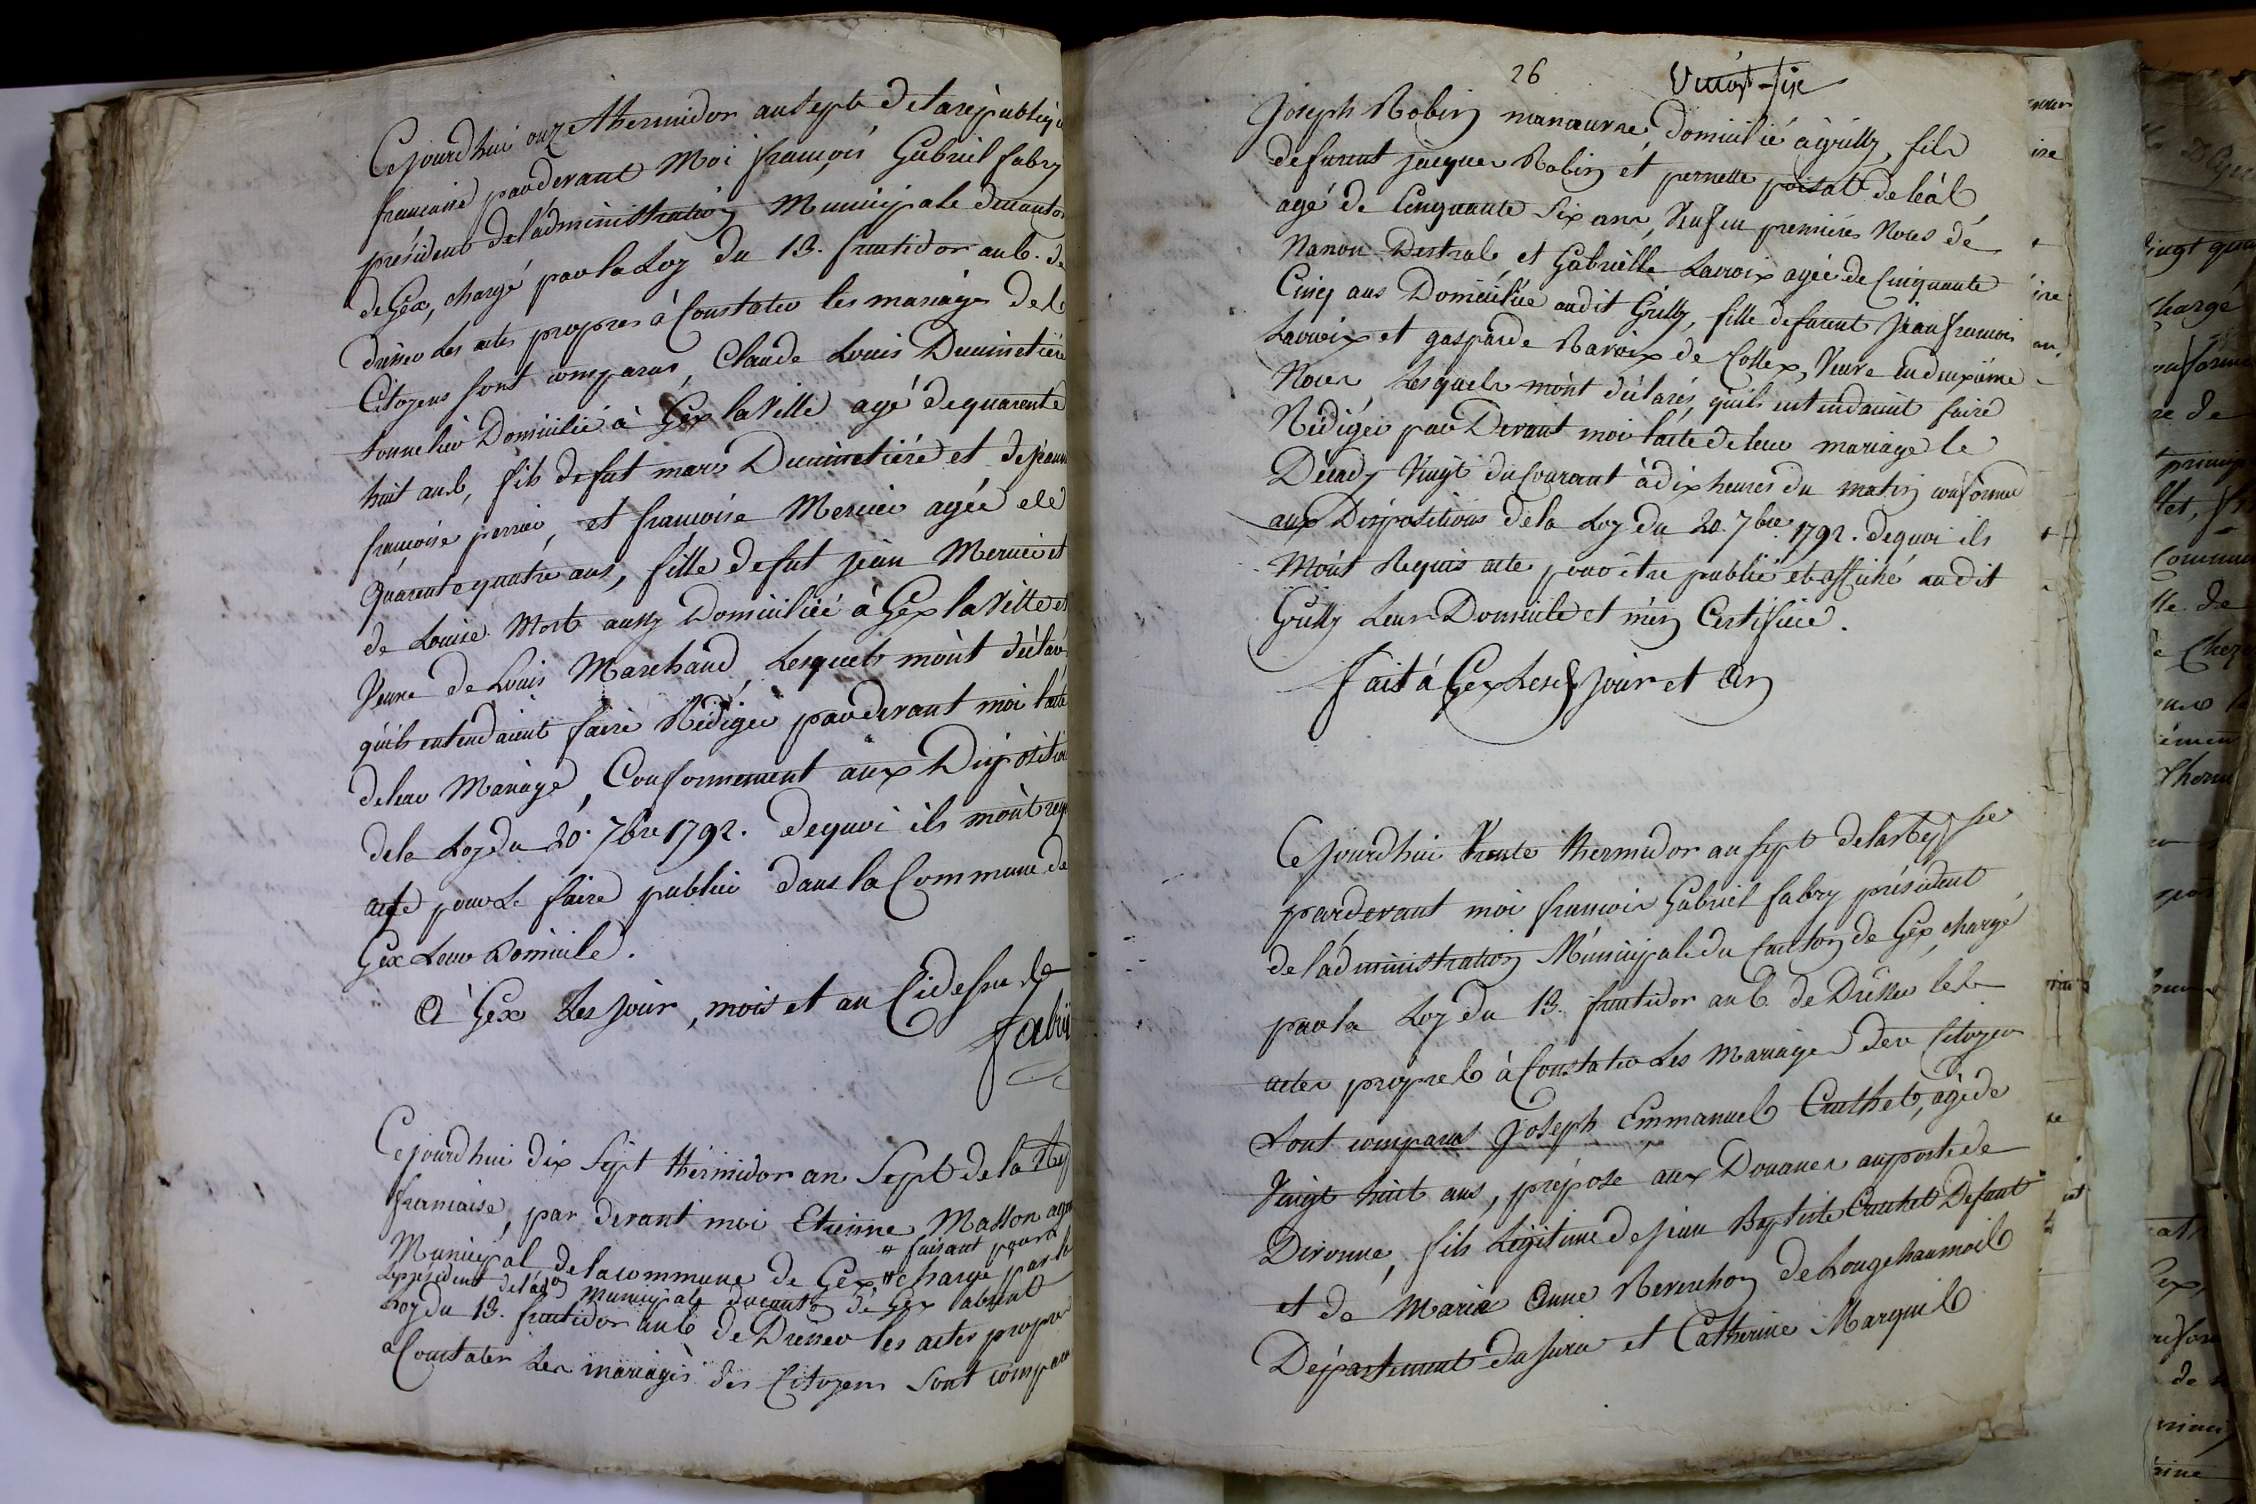 Cejourdhui onze thermidor an sept de la république
francaise pardevant Moi françois Gabriel fabry
président de l'administration Municipale du canton
de Gex, chargé par la Loy du 13. fructidor an 6. de
dresser les actes propres à Constater les mariages des
Citoyens sont comparus, Claude Louis Ducimetière
tonnelier Domicilié à Gex la Ville agé de quarente
huit ans, fils de fut marc Ducimetiére et de jeanne
françoise perrier, et francoise Mercier agée de
quarente quatre ans, fille de fut jean Mercier et
de Louise Mort aussy Domiciliée à Gex la Ville et
Veuve de Louis Marchand, Lesquels m'ont déclaré
qu'ils entendaient faire Rédiger pardevant moi l'acte
de leur Mariage, Conformement aux Dispositions
de la Loy du 20. 7bre 1792. dequoi ils m'ont requis
acte pour le faire publier dans la Commune de
Gex Leur Domicile.
A Gex Les jour, mois et an Cidessus
fabry
Cejourdhui dix Sept thermidor an Sept de la Rep
francaise, par devant moi Etienne Masson agent
Municipal de la commune de Gex # chargé par la
# faisant pour
Le président de l'adon municipale du canton de Gex absent
Loy du 13. fructidor an 6 de Dresser les actes propres
a Constater Les mariages des Citoyens Sont comparus
26 Vingt-six
Joseph Robin manœuvre, Domicilié à grilly, fils
defunt jacques Robin et pernette poisat de léal
agé de Cinquante Six ans, Veuf en premières Noces de
Nanon Destral et Gabrielle Lacroix agée de Cinquante
Cinq ans Domiciliée audit Grilly, fille defunt Jean francois
Lacroix et gasparde Baroix de Collex, Veuve en deuxième
Noces Lesquels m'ont déclarés qu'ils entendaient faire
Rédiger par Devant moi l'acte de leur mariage le
Décady Vingt du Courant à dix heures du matin conforme
aux Dispositions de la Loy du 20. 7bre 1792. dequoi ils
M'ont Requis acte pour être publié et affiché audit
Grilly Leur Domicile et m'en Certifier.
fait à Gex Lesd. jour et an
Cejourdhui trente thermidor an sept de la Rep fse
pardevant moi francois Gabriel fabry président
de l'administration Municipale du Canton de Gex, chargé
par la Loy du 13. fructidor an 6 de Dresser les
actes propres à Constater Les Mariages des Citoyens
sont comparus Joseph Emmanuel Cruchet, agé de
Vingt huit ans, préposé aux Douanes au poste de
Divonne, fils Légitime de jean Baptiste Cruchet Defunt
et de Marie Anne Reverchon de Longchaumois
Département du Jura et Catherine Marquis